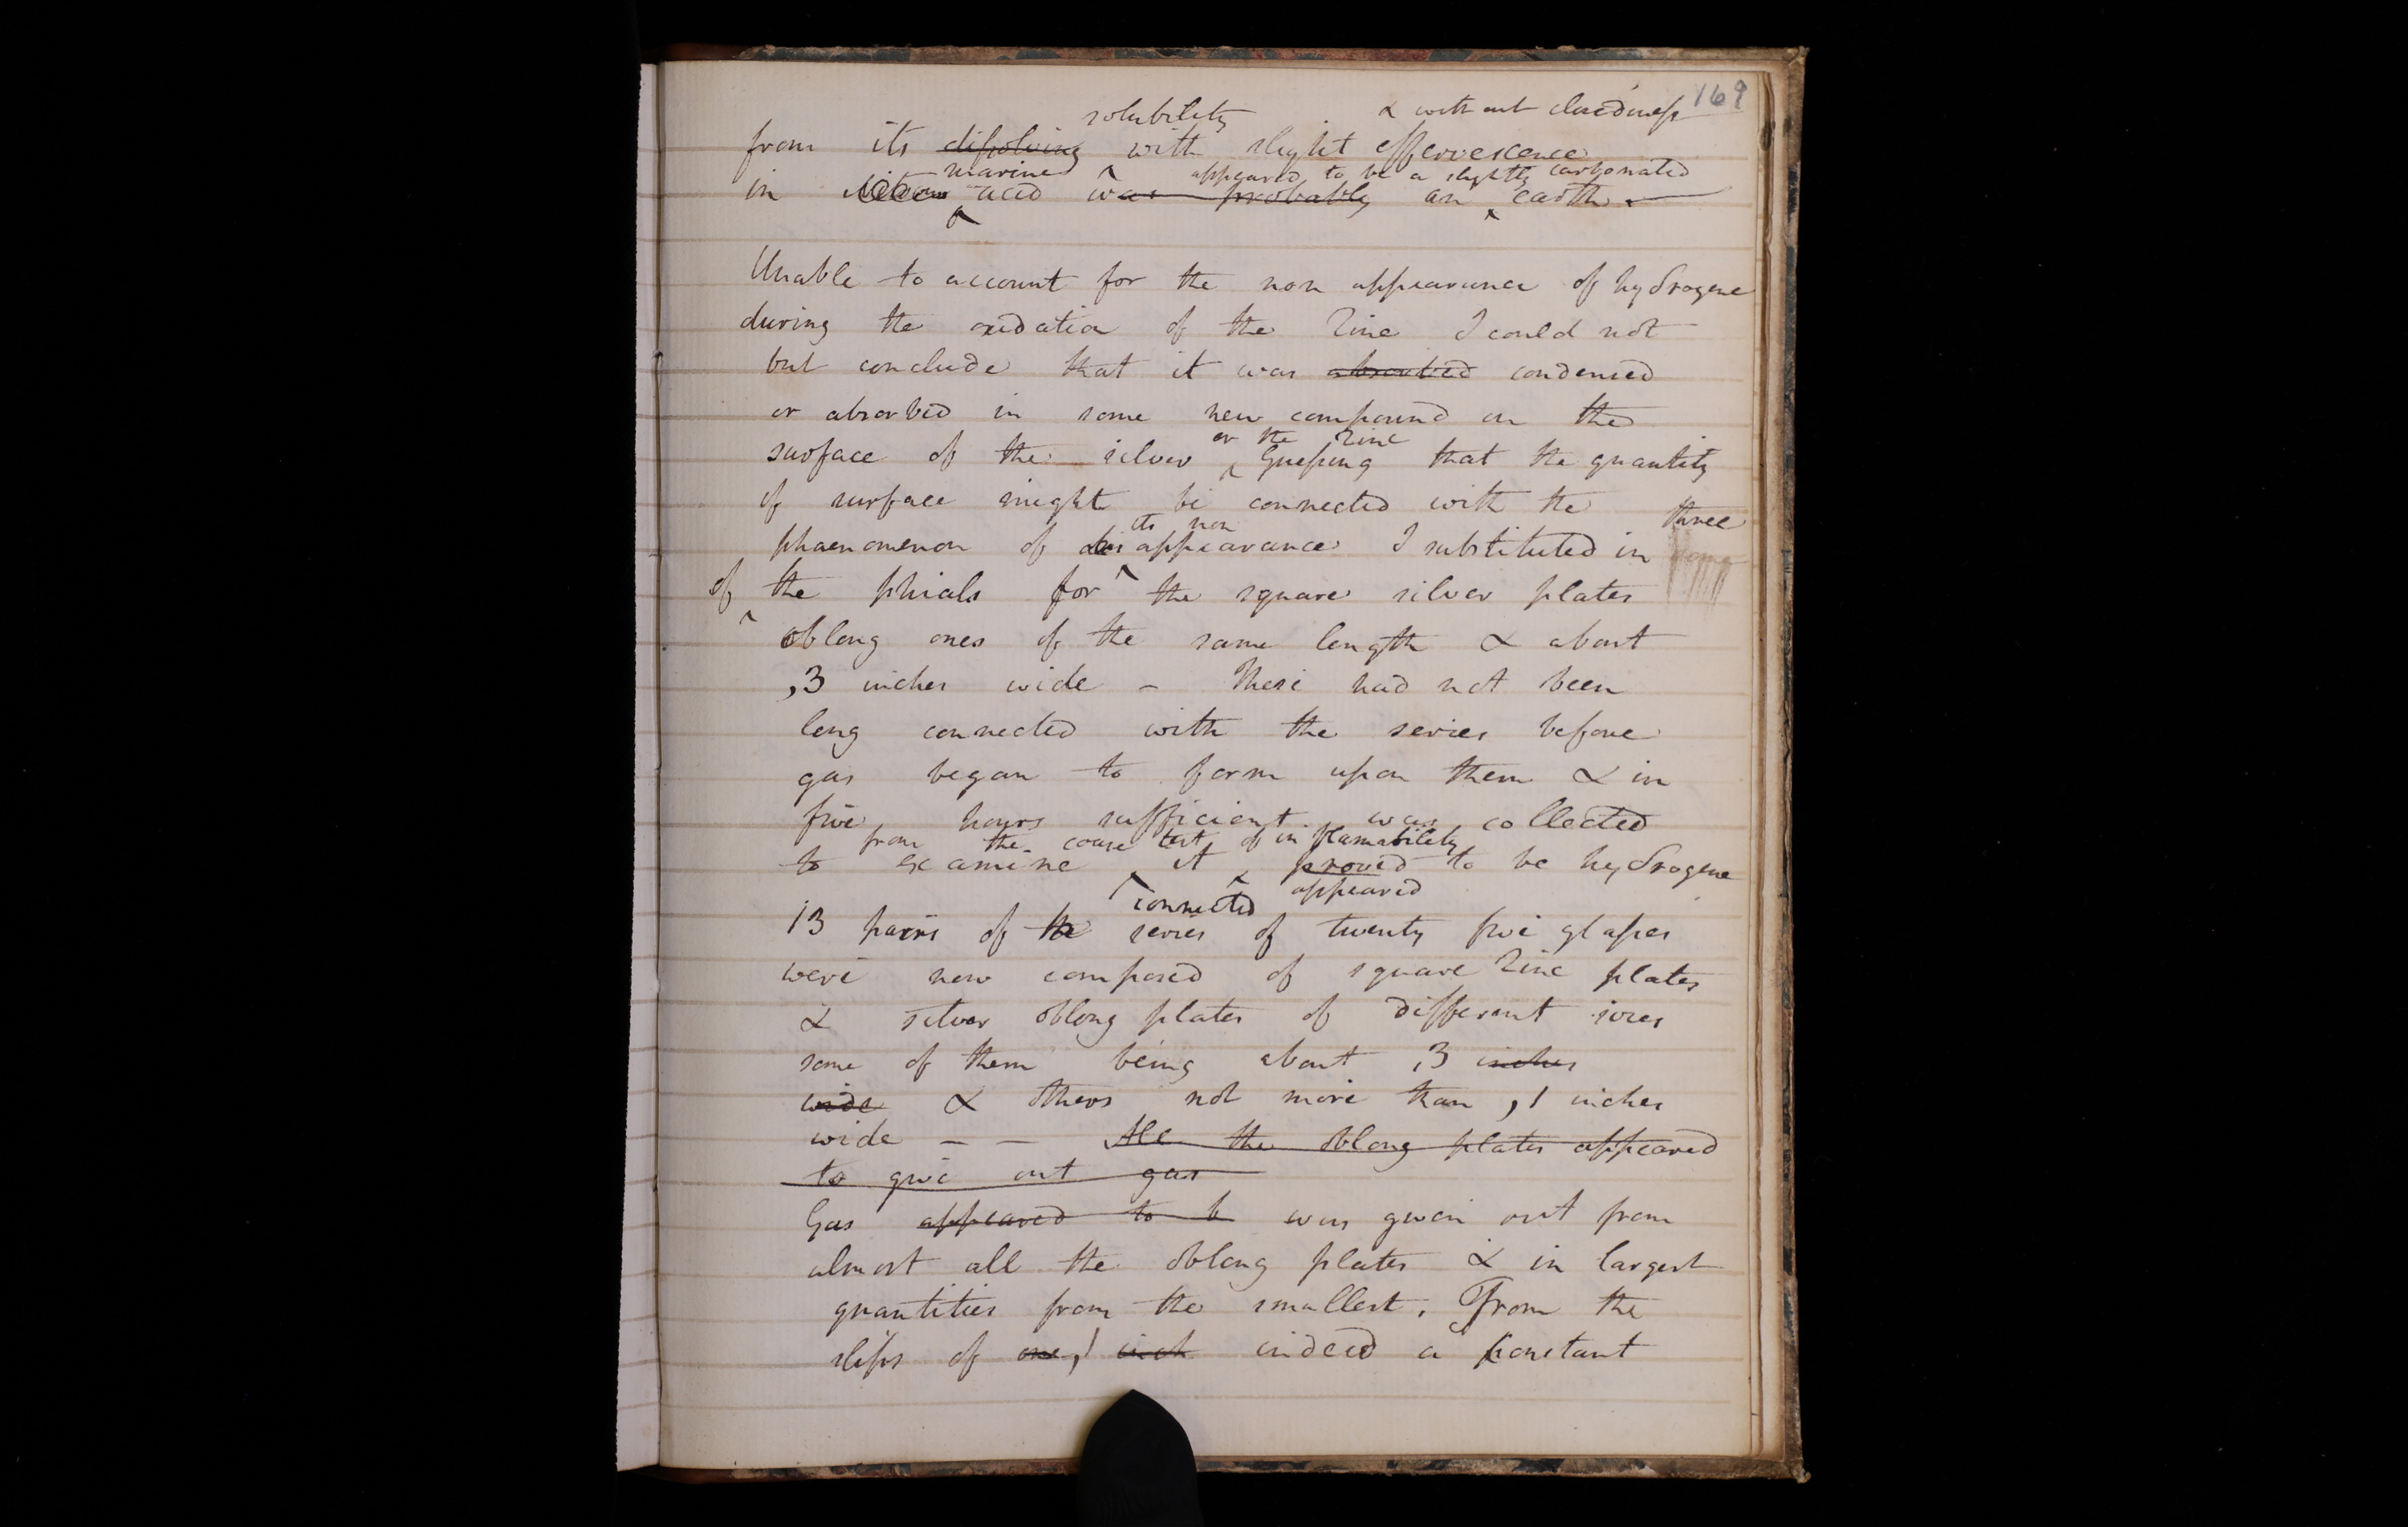 169
solubility & without cloudiness
from its dissolving with slight effervescence
marine appeared to be a slightly carbonated
in acid was probably an earth. —
Unable to account for the non appearance of hydrogene
during the oxidation of the zinc I could not
but conclude that it was absorbed condensed
or absorbed in some new compound on the
or the zinc
surface of the silver Guessing that the quantity
of surface might be connected with the
its non three
phaenomenon of dis appearance I substituted in
of the phials for the square silver plates
oblong ones of the same length & about
,3 inches wide – These had not been
long connected with the series before
gas began to form upon them & in
five hours sufficient was collected
from the coarse test of inflamability
to examine it proved to be hydrogene
connected appeared
13 pairs of the series of twenty five glasses
were now composed of square zinc plates
& silver oblong plates of different sizes
some of them being about ,3 inches
wide & others not more than ,1 inches
wide – – All the oblong plates appeared
to give out gas
Gas appeared to b was given out from
almost all the oblong plates & in largest
quantities from the smallest. From the
slips of one ,1 inch indeed a constant